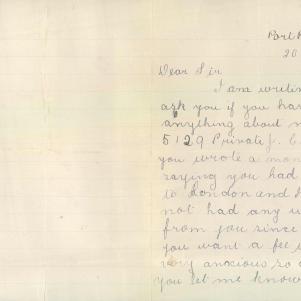 Port
20
Dear Sir
I am writin
ask you if you ha
anything about
5129 Private J.
you wrote a mon
saying you had
to London and
not had any w
from you since
you want a fee
very anxious so
you let me know